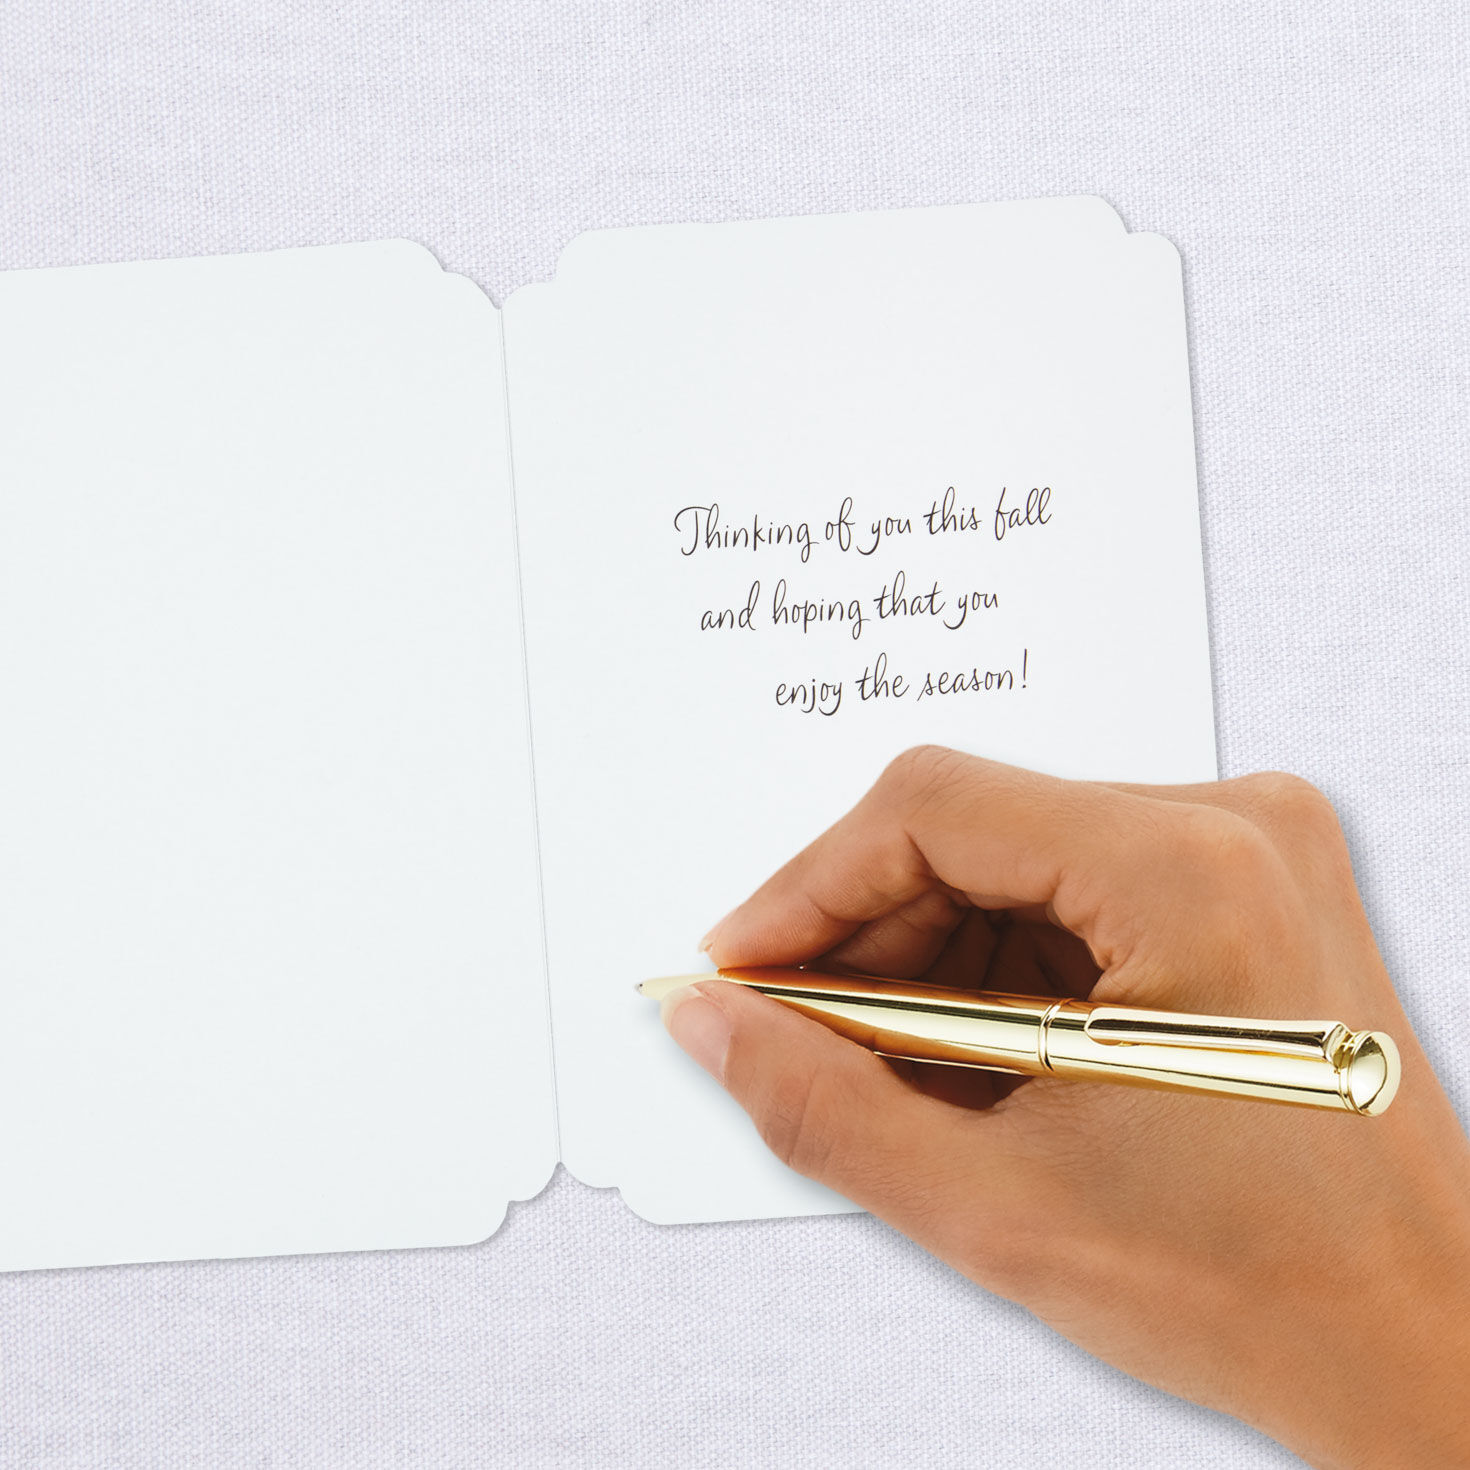 Thinking of you this fall
and hoping that you
enjoy the season!